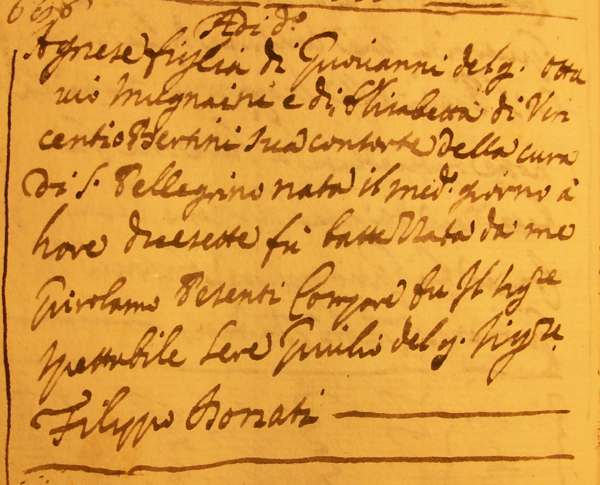 Adi d.º
Agnese figlia di Giovanni del q. Otta
vio Mugnaini e di Elisabetta di Vin
centio Bertini sua consorte della cura
di S. Pellegrino nata il med.º giorno à
hore diecesette fù battezzata da me
Girolamo Pesenti Compare fu Il Sig.re
spettabile Sere Giulio del q. Sig.re
Filippo Bonati